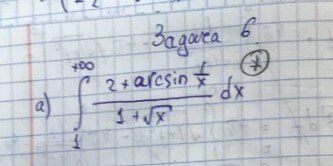 Задача 6
*
а) ∫₁^{+∞} (2 + arcsin 1/x) / (1 + √x) dx